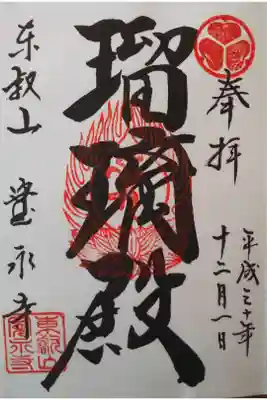 奉拝
平成三十年
十二月一日
瑠璃殿
東叡山
寛永寺
東叡山
寛永寺